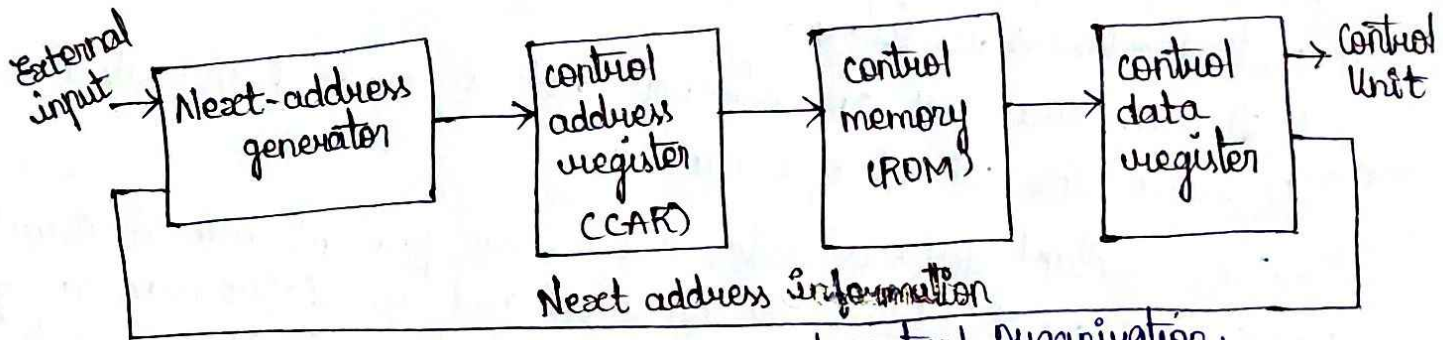 External
input
Next-address
generator
control
address
register
(CAR)
control
memory
(ROM)
control
data
register
control
Unit
Next address information
control organization.